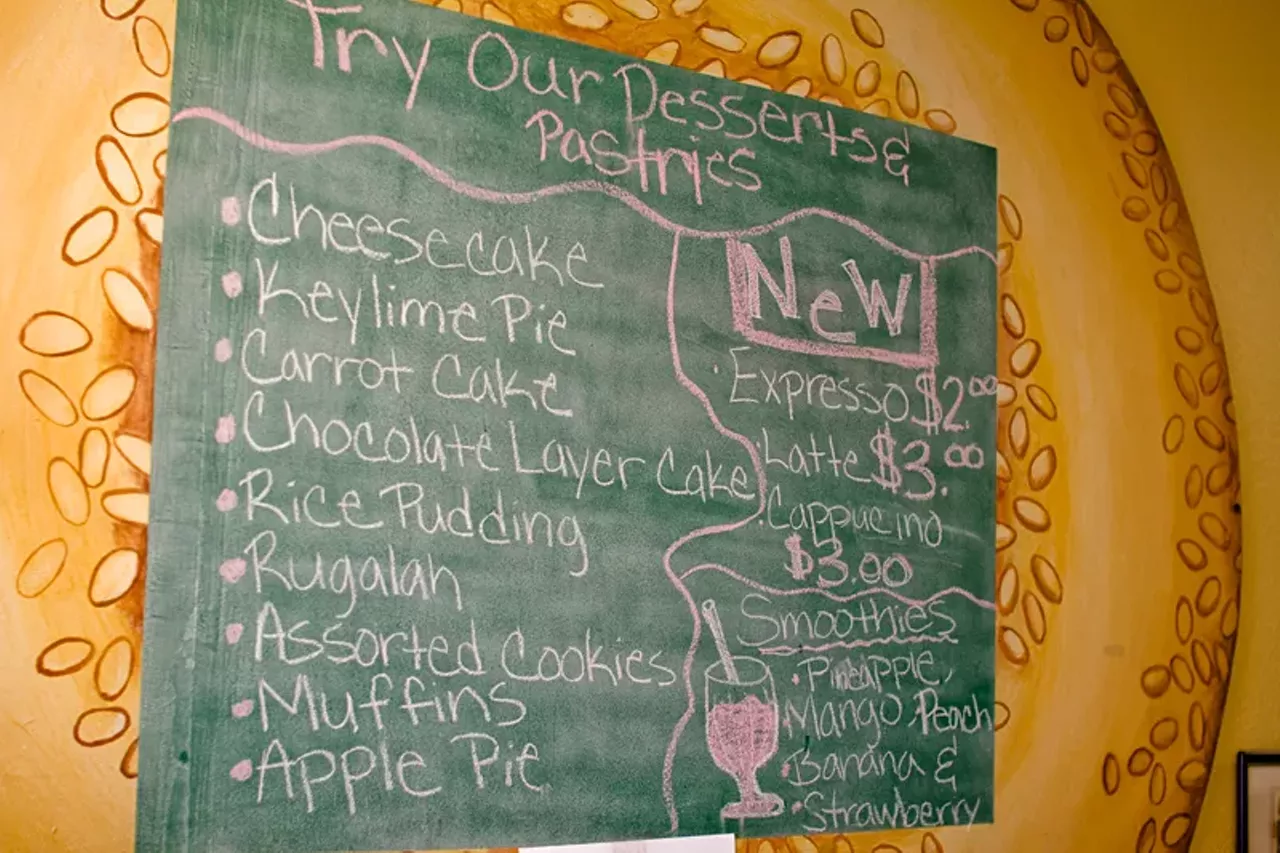 Try Our Desserts &
Pastries
• Cheesecake
• Keylime Pie
• Carrot Cake
• Chocolate Layer Cake
• Rice Pudding
• Rugalah
• Assorted Cookies
• Muffins
• Apple Pie
New
• Expresso $2.00
• Latte $3.00
• Cappucino
$3.00
Smoothies
• Pineapple,
Mango, Peach
• Banana &
• Strawberry